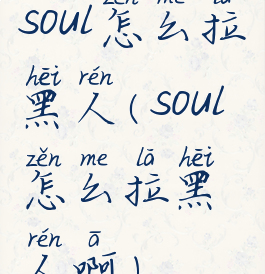 zěn me lā
soul怎么拉
hēi rén
黑人(soul
zěn me lā hēi
怎么拉黑
rén ā
人啊)